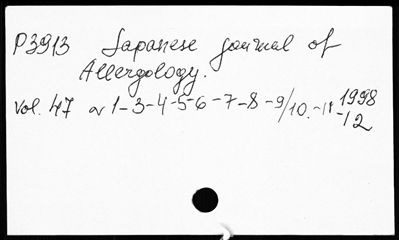 P3913 Japanese journal of
Allergology.
vol. 47 nr 1-3-4-5-6-7-8-9/10.-11-12 1998